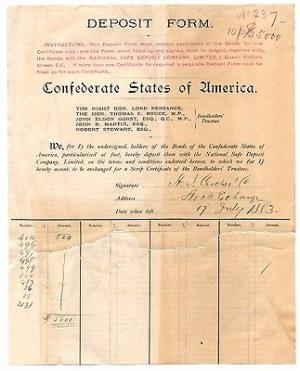 DEPOSIT FORM.
No 237
10/ $5000
INSTRUCTIONS: This Deposit Form must contain particulars of the Bonds for one
Certificate only; and the Form, when filled up and signed, must be lodged, together with
the Bonds, with the NATIONAL SAFE DEPOSIT COMPANY, LIMITED, 1 Queen Victoria
Street, E.C. If more than one Certificate be required a separate Deposit Form must be
filled up for each Certificate.
Confederate States of America.
THE RIGHT HON. LORD PENZANCE,
THE HON. THOMAS C. BRUCE, M.P.,
JOHN ELDON GORST, ESQ., Q.C., M.P.,
JOHN B. MARTIN, ESQ.,
ROBERT STEWART, ESQ.,
Bondholders'
Trustees.
We, for I) the undersigned, holders of the Bonds of the Confederate States of
America, particularized at foot, hereby deposit them with the National Safe Deposit
Company, Limited, on the terms and conditions endorsed hereon, to which we (or I)
hereby assent, to be exchanged for a Scrip Certificate of the Bondholders' Trustees.
Signature
Address Stock Exchange
Date when left 17 July 1883.
Number. Amount. Number. Amount. Number. Amount. Number. Amount.
500
$ 5000